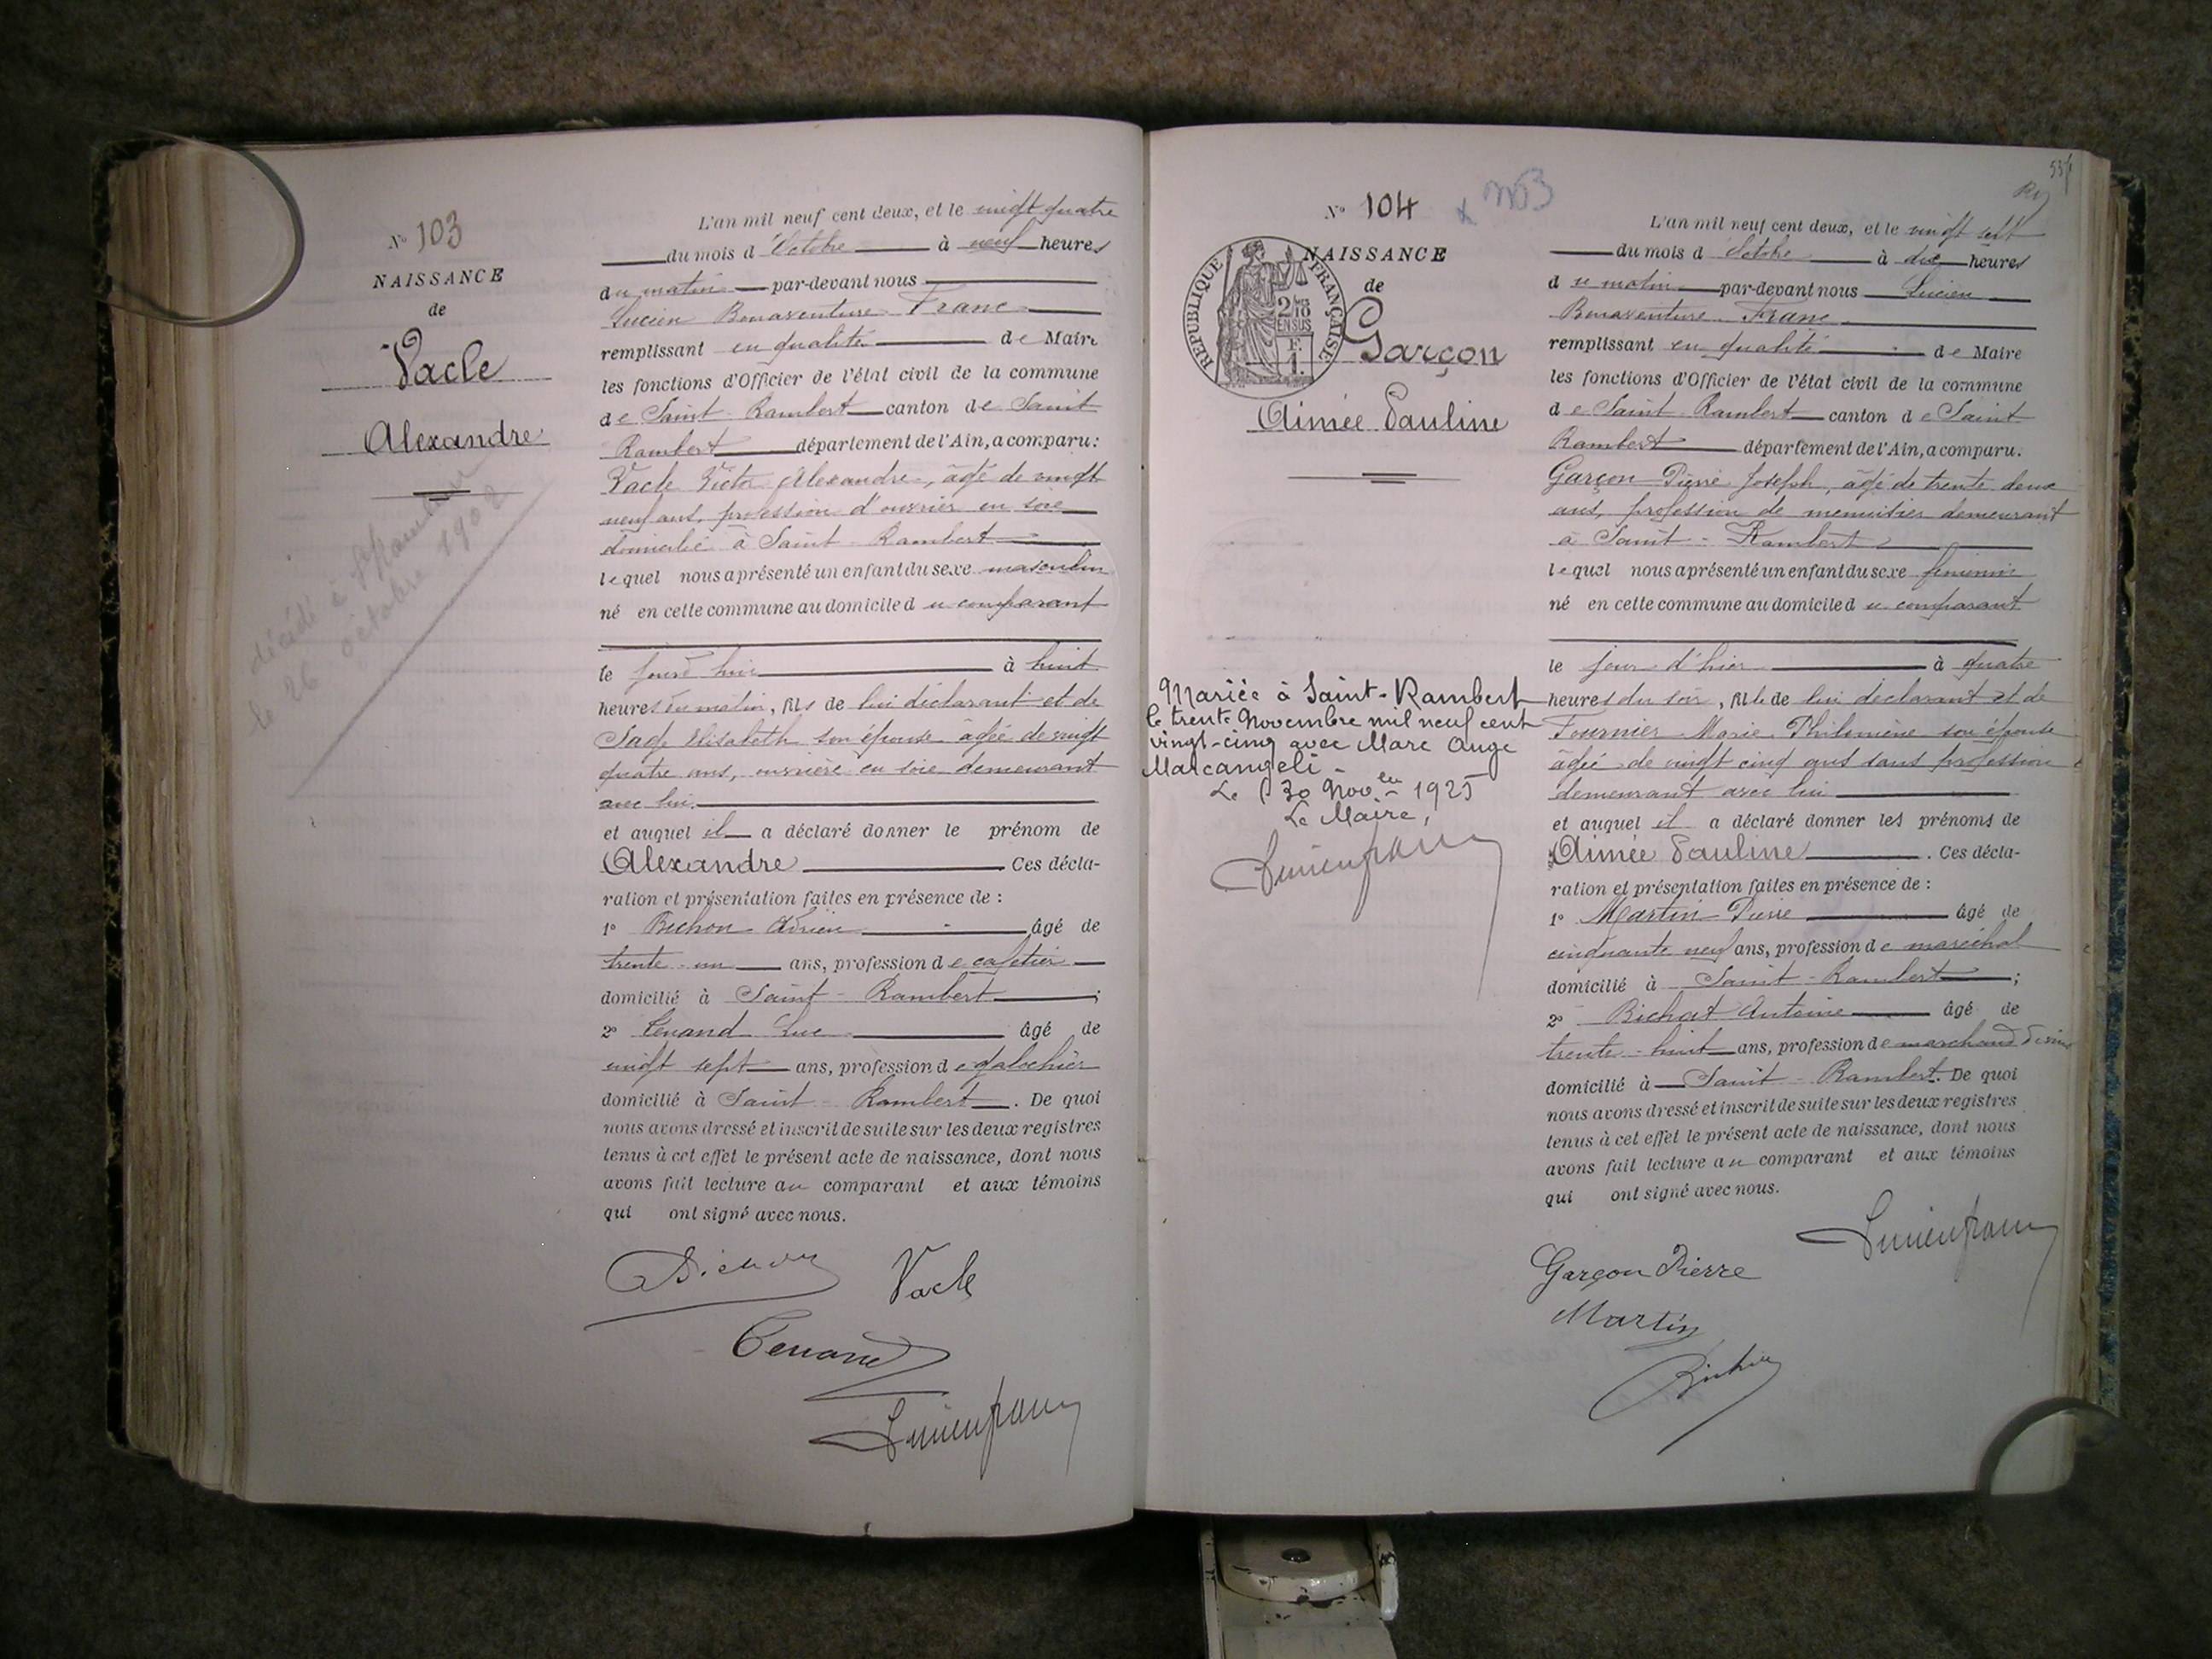 N° 103
NAISSANCE
de
Vacle
Alexandre
décédé à St Rambert
le 26 octobre 1902
L'an mil neuf cent deux, et le vingt quatre
du mois d'Octobre à neuf heures
du matin par-devant nous
Lucien Bonaventure Franc
remplissant en qualité de Maire
les fonctions d'Officier de l'état civil de la commune
de Saint Rambert canton de Saint
Rambert département de l'Ain, a comparu:
Vacle Victor Alexandre, âgé de vingt
neuf ans, profession d'ouvrier en soie
domicilié à Saint Rambert
lequel nous a présenté un enfant du sexe masculin
né en cette commune au domicile du comparant
le à huit
heures du matin, fils de lui déclarant et de
Elisabeth son épouse âgée de vingt
quatre ans, ouvrière en soie demeurant
avec lui.
et auquel il a déclaré donner le prénom de
Alexandre Ces décla-
ration et présentation faites en présence de :
1° Bichon Adrien âgé de
trente un ans, profession de cafetier
domicilié à Saint-Rambert ;
2° Luc âgé de
vingt sept ans, profession de galochier
domicilié à Saint Rambert. De quoi
nous avons dressé et inscrit de suite sur les deux registres
tenus à cet effet le présent acte de naissance, dont nous
avons fait lecture au comparant et aux témoins
qui ont signé avec nous.
Vacle
N° 104
NAISSANCE
de
RÉPUBLIQUE FRANÇAISE
Garçon
Aimée Pauline
Mariée à Saint-Rambert
le trente Novembre mil neuf cent
vingt-cinq avec Marc Ange
Marcangeli.
Le 30 Nov. 1925
Le Maire,
L'an mil neuf cent deux, et le vingt sept
du mois d'Octobre à dix heures
du matin par-devant nous Lucien
Bonaventure Franc
remplissant en qualité de Maire
les fonctions d'Officier de l'état civil de la commune
de Saint Rambert canton de Saint
Rambert département de l'Ain, a comparu:
Garçon Pierre Joseph, âgé de trente deux
ans, profession de menuisier demeurant
à Saint-Rambert
lequel nous a présenté un enfant du sexe féminin
né en cette commune au domicile du comparant
le jour d'hier à quatre
heures du soir, fille de lui déclarant et de
Fournier Marie Philomène son épouse
âgée de vingt cinq ans sans profession
demeurant avec lui
et auquel il a déclaré donner les prénoms de
Aimée Pauline. Ces décla-
ration et présentation faites en présence de :
1° Martin Pierre âgé de
cinquante neuf ans, profession de maréchal
domicilié à Saint-Rambert ;
2° Bichat Antoine âgé de
trente-huit ans, profession de marchand de vins
domicilié à Saint-Rambert. De quoi
nous avons dressé et inscrit de suite sur les deux registres
tenus à cet effet le présent acte de naissance, dont nous
avons fait lecture au comparant et aux témoins
qui ont signé avec nous.
Garçon Pierre
Martin